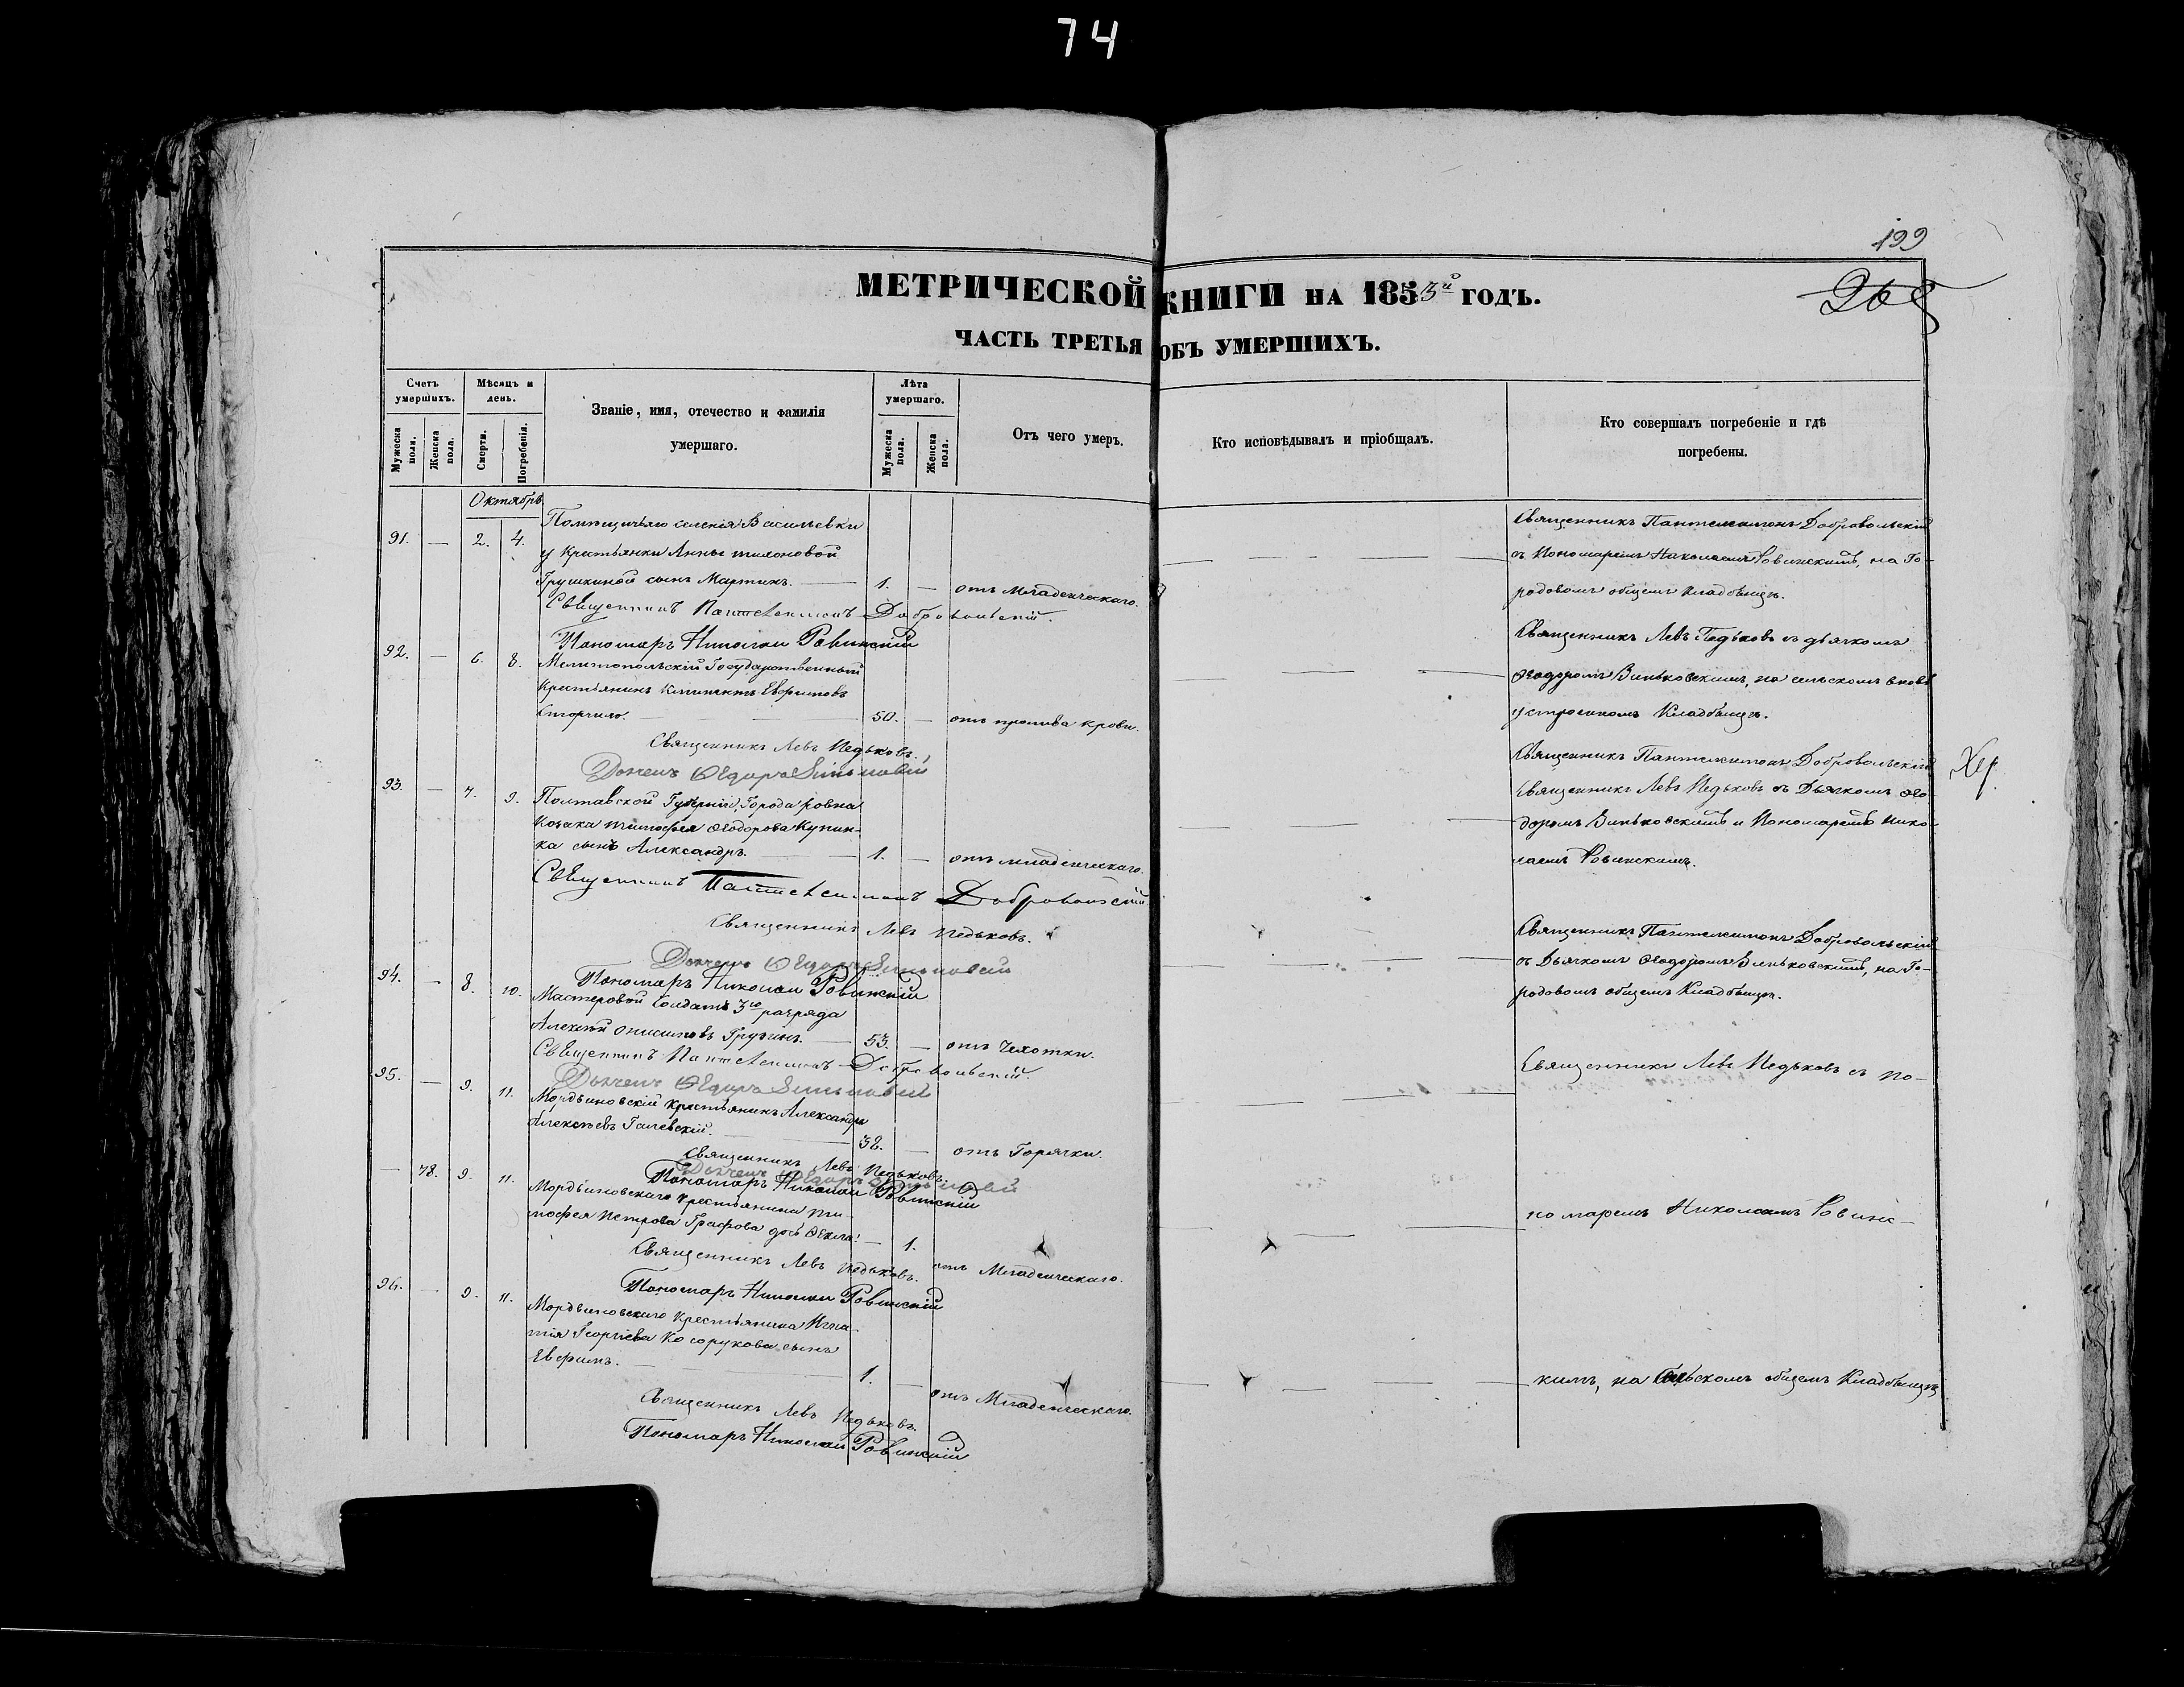 74
199
268
МЕТРИЧЕСКОЙ КНИГИ НА 1853й ГОДЪ.
ЧАСТЬ ТРЕТЬЯ ОБЪ УМЕРШИХЪ.
Счетъ умершихъ.
Мужеска пола.
Женска пола.
Мѣсяцъ и день.
Смерти.
Погребенія.
Званіе, имя, отечество и фамилія
умершаго.
Лѣта умершаго.
Мужеска пола.
Женска пола.
Отъ чего умеръ.
Кто исповѣдывалъ и пріобщалъ.
Кто совершалъ погребеніе и гдѣ
погребены.
Октябрь
Помѣщичьяго селенія Васильевки
91. — 2. 4. у крестьянки Анны
Грушкиной сынъ Мартинъ. — 1. — отъ младенческаго.
Священникъ Пантелеимонъ Добровольскій.
Пономарь Николай Ровинскій
Священникъ Пантелеимонъ Добровольскій
съ Пономаремъ Николаемъ Ровинскимъ, на Го-
родовомъ общемъ кладбищѣ.
92. — 6. 8. Мелитопольскій Государственный
Крестьянинъ Климентъ Евфимовъ
— 50. — отъ крови.
Священникъ Левъ Педьковъ.
Дьячекъ Ѳедоръ
Священникъ Левъ Педьковъ съ дьячкомъ
Ѳеодоромъ Зиньковскимъ, на сельскомъ вновь
устроенномъ Кладбищѣ.
93. — 7. 9. Полтавской Губерніи, Города
Козака Тимофея Ѳеодорова Купин-
ка сынъ Александръ. — 1. — отъ младенческаго.
Священникъ Пантелеимонъ Добровольскій
Священникъ Левъ Педьковъ.
Дьячекъ Ѳедоръ
Пономарь Николай Ровинскій
Священникъ Пантелеимонъ Добровольскій
Священникъ Левъ Педьковъ съ Дьячкомъ Ѳео-
доромъ Зиньковскимъ и Пономаремъ Нико-
лаемъ Ровинскимъ.
94. — 8. 10. Мастеровой Солдатъ 3го разряда
Алексѣй Онисимовъ — 53. — отъ Чахотки.
Священникъ Пантелеимонъ Добровольскій.
Дьячекъ Ѳедоръ
Священникъ Пантелеимонъ Добровольскій
съ Дьячкомъ Ѳеодоромъ Зиньковскимъ, на Го-
родовомъ общемъ Кладбищѣ.
95. — 9. 11. Мордвиновскій крестьянинъ Александръ
Алексѣевъ — 32. — отъ Горячки.
Священникъ Левъ Педьковъ.
Пономарь Николай Ровинскій
Священникъ Левъ Педьковъ съ По-
— 78. 9. 11. Мордвиновскаго крестьянина Ти-
мофея Петрова дочь Ѳекла. — 1. отъ Младенческаго.
Священникъ Левъ Педьковъ.
Пономарь Николай Ровинскій
номаремъ Николаемъ Ровинс-
96. — 9. 11. Мордвиновскаго крестьянина Игна-
тія Георгіева Косорукова сынъ
Евфимъ. — 1. — отъ Младенческаго.
Священникъ Левъ Педьковъ.
Пономарь Николай Ровинскій
кимъ, на Сельскомъ общемъ Кладбищѣ